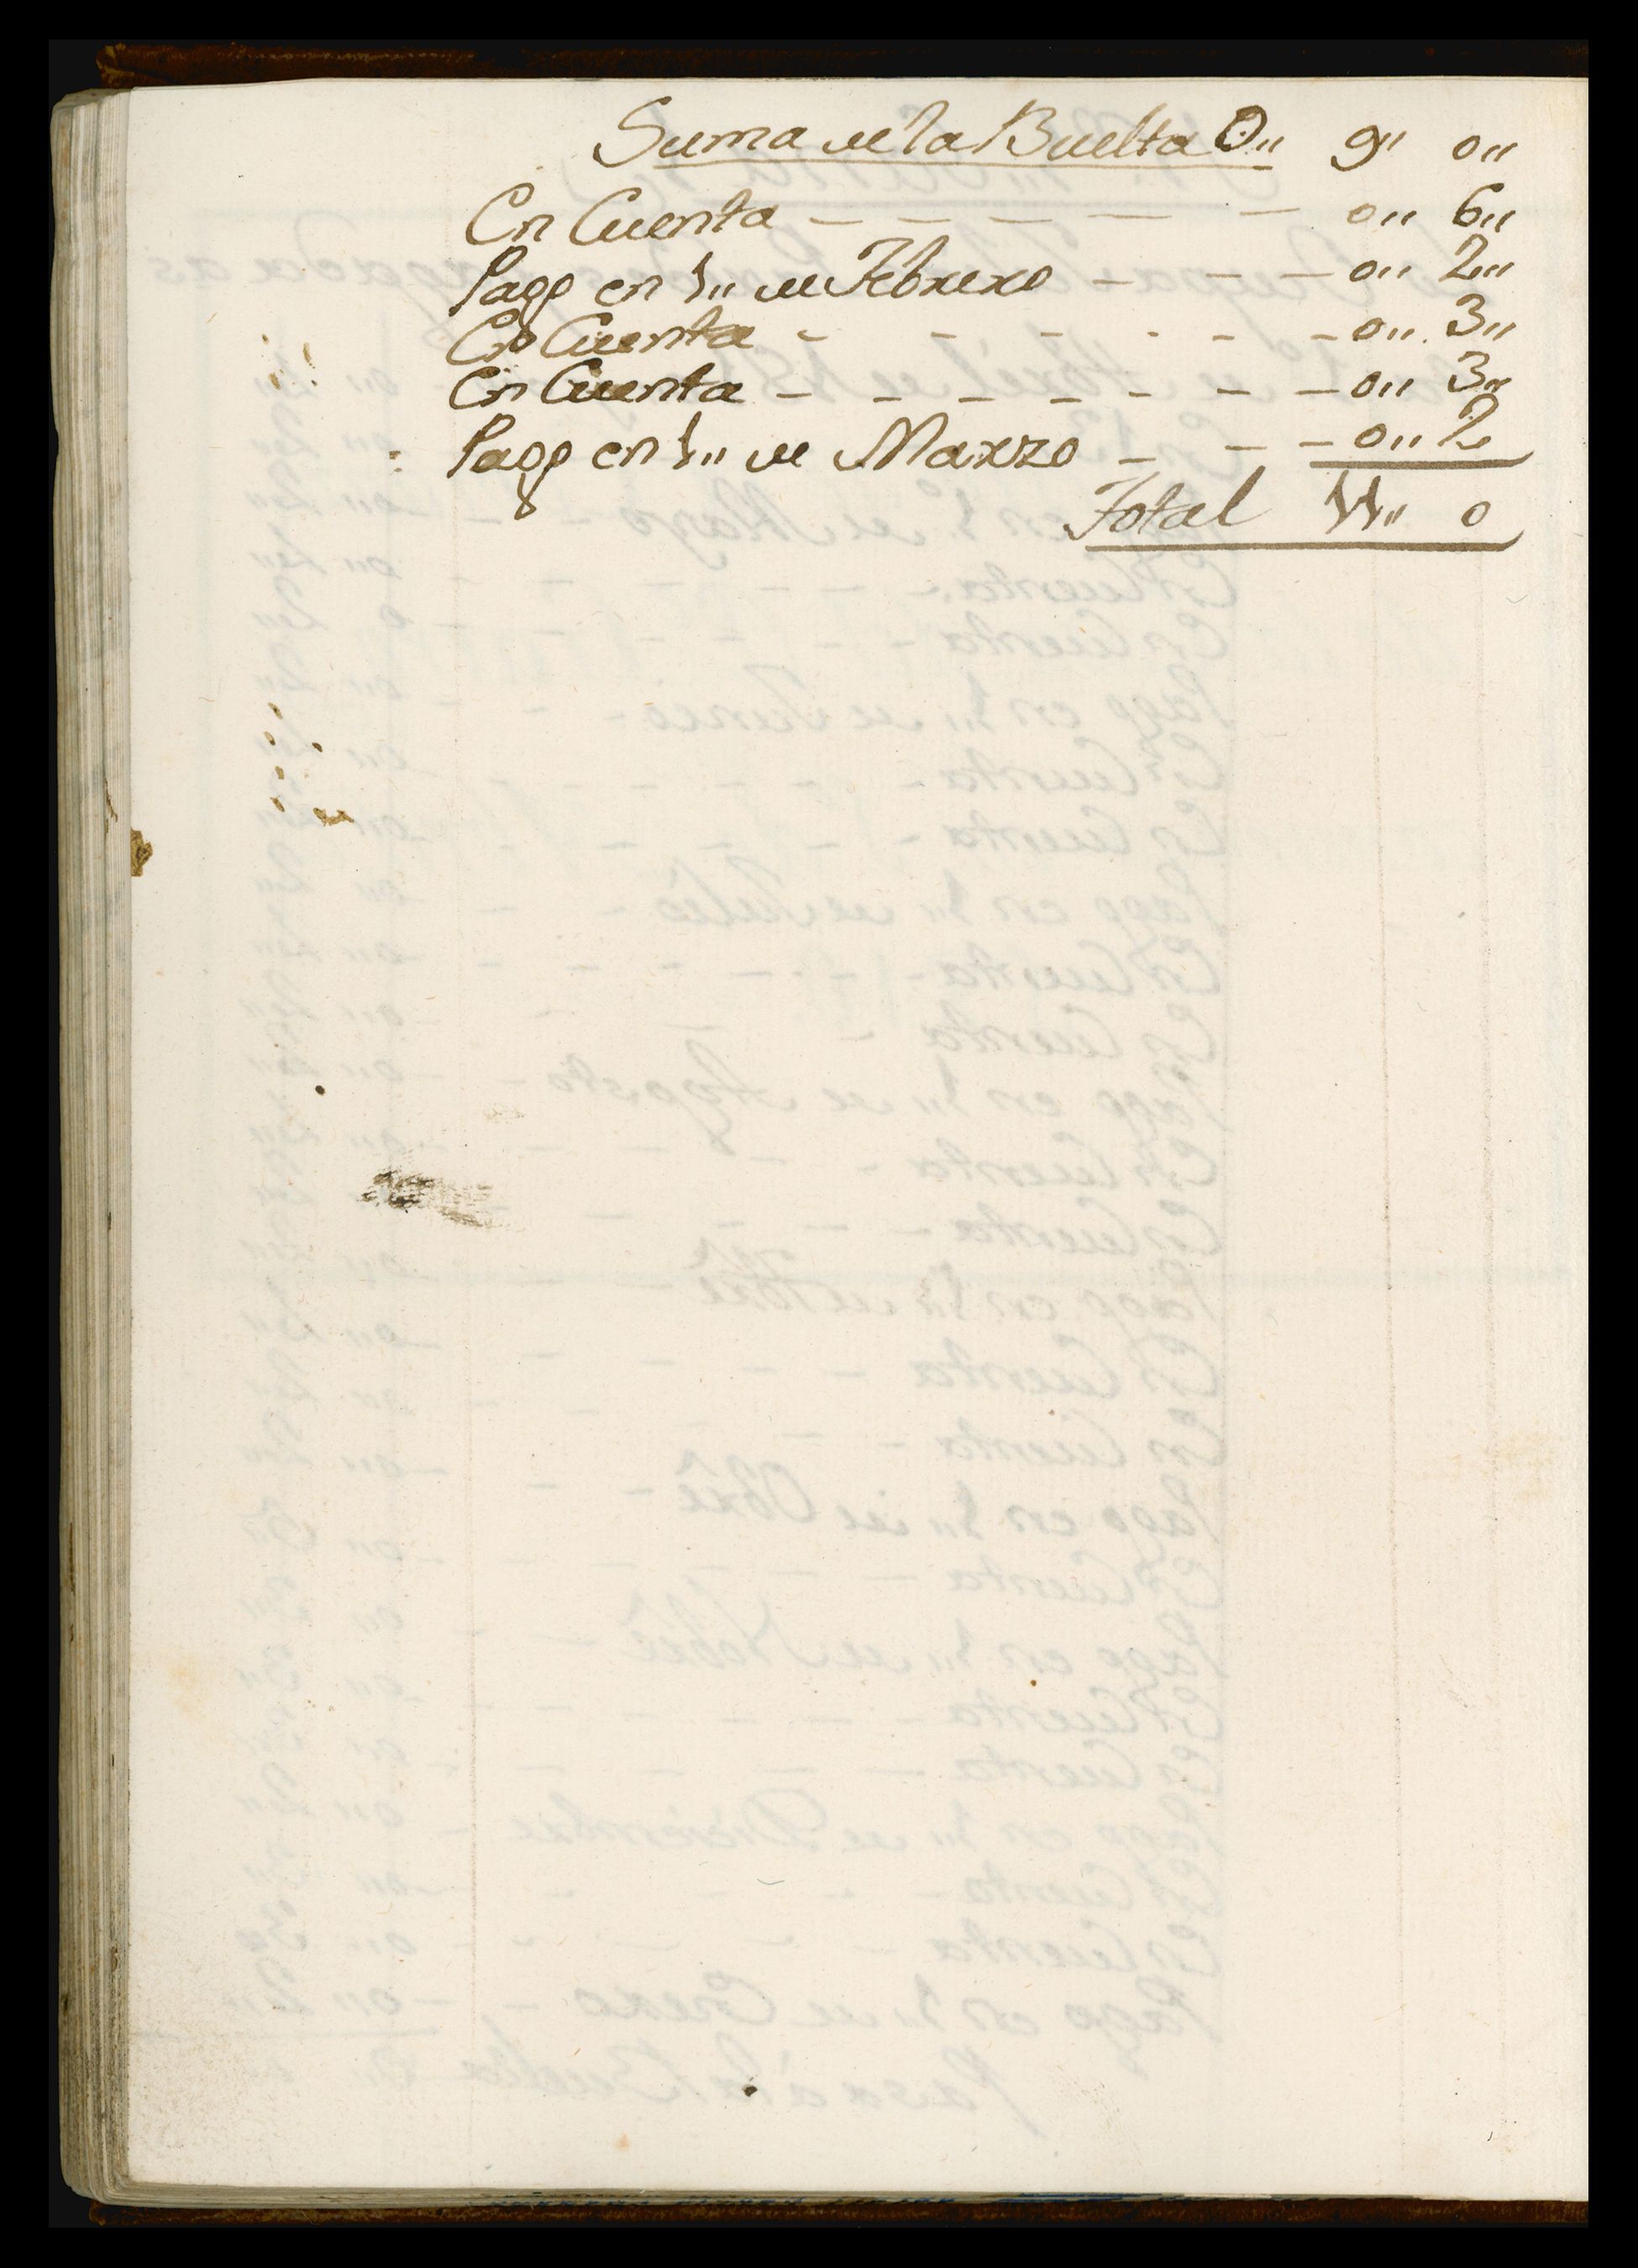 Suma de la Buelta 0,, 9,, 0,,
En Cuenta – – – – – 0,, 6,,
Pago en 1,, de Febrero – – – 0,, 2,,
En Cuenta – – – – – – 0,, 3,,
En Cuenta – – – – – – – 0,, 3,,
Pago en 1,, de Marzo – – – 0,, 2
Total 11,, 0